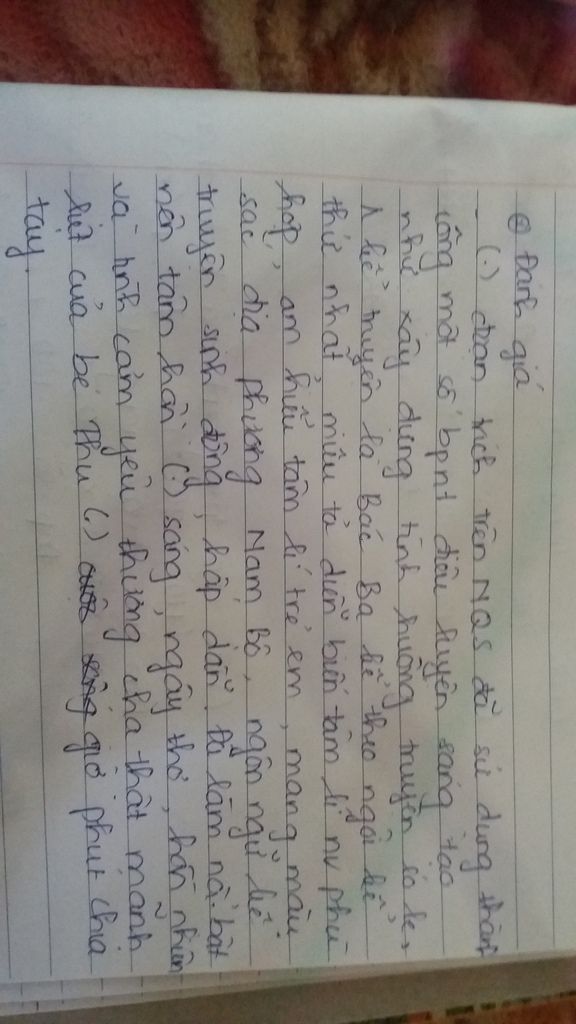 ⊕ Đánh giá
- (.) đoạn trích trên NQS đã sử dụng thành
công một số bpnt điêu luyện sáng tạo
như xây dựng tình huống truyện
kể truyện là Bác Ba kể theo ngôi kể
thứ nhất, miêu tả diễn biến tâm lí nv phù
hợp, am hiểu tâm lí trẻ em, mang màu
sắc địa phương Nam Bộ, ngôn ngữ kể
truyện sinh động, hấp dẫn. Đã làm nổi bật
nên tâm hồn (.) sáng, ngây thơ, hồn nhiên
và tình cảm yêu thương cha thật mãnh
liệt của bé Thu (.) giờ phút chia
tay.